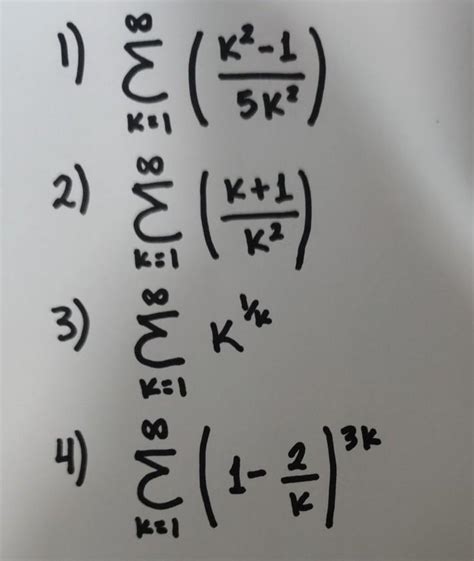 1) ∑_{k=1}^{∞} ( (k²-1)/(5k²) )
2) ∑_{k=1}^{∞} ( (k+1)/(k²) )
3) ∑_{k=1}^{∞} k^{1/k}
4) ∑_{k=1}^{∞} ( 1 - 2/k )^{3k}